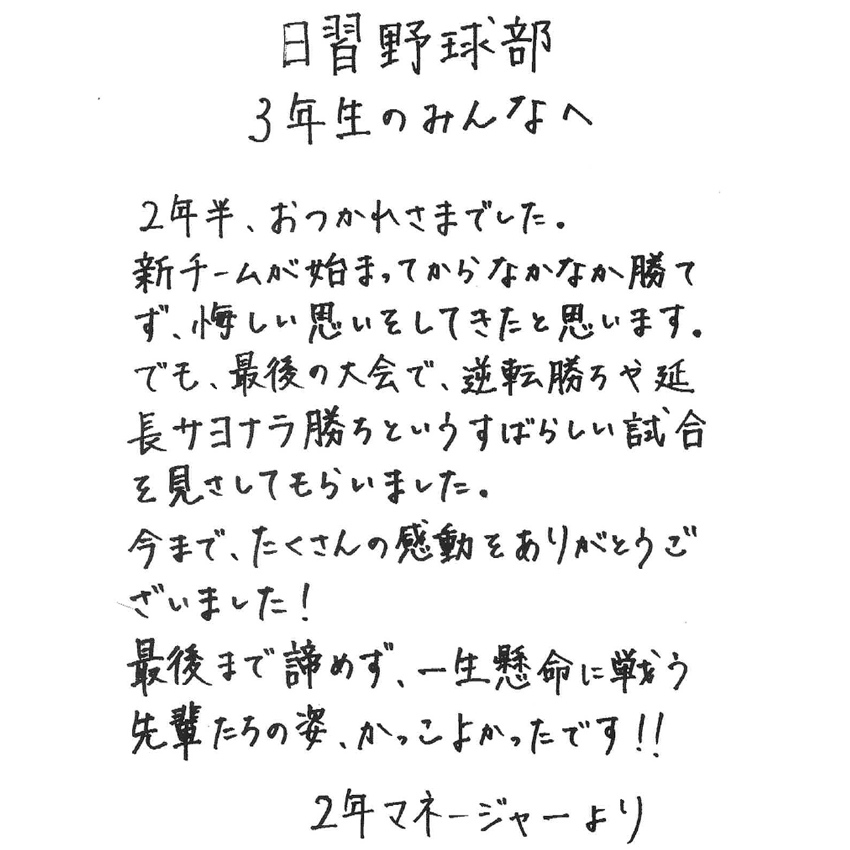 日習野球部
3年生のみんなへ
2年半、おつかれさまでした。
新チームが始まってからなかなか勝て
ず、悔しい思いをしてきたと思います。
でも、最後の大会で、逆転勝ちや延
長サヨナラ勝ちというすばらしい試合
を見さしてもらいました。
今まで、たくさんの感動をありがとうご
ざいました!
最後まで諦めず、一生懸命に戦う
先輩たちの姿、かっこよかったです!!
2年マネージャーより